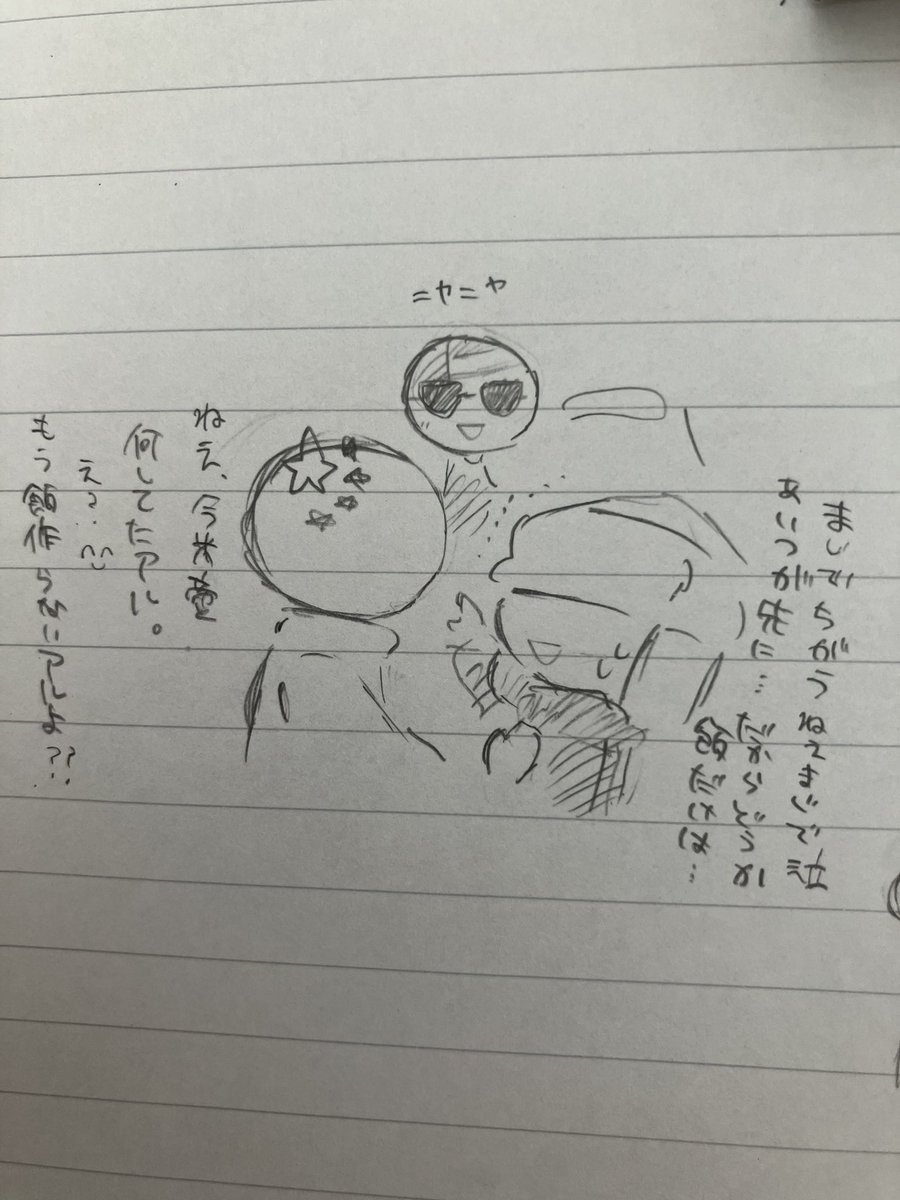 ニヤニヤ
まじでちがう ねえまじで
あいつが
先に…
だからどうか
飯だけは…
ねえ、今
何してた
え?
もう飯作らない